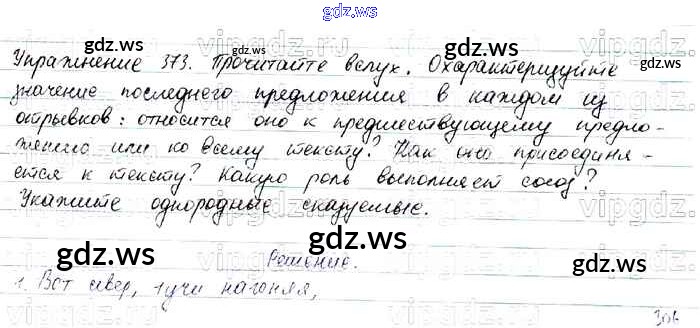 gdz.ws
gdz.ws gdz.ws gdz.ws
Упражнение 373. Прочитайте вслух. Охарактеризуйте
значение последнего предложения в каждом из
отрывков: относится оно к предшествующему предло-
жению или ко всему тексту? Как оно присоединя-
ется к тексту? Какую роль выполняет союз?
Укажите однородные сказуемые.
gdz.ws gdz.ws gdz.ws
Решение.
1. Вот север, тучи нагоняя,
306
gdz.ws gdz.ws gdz.ws